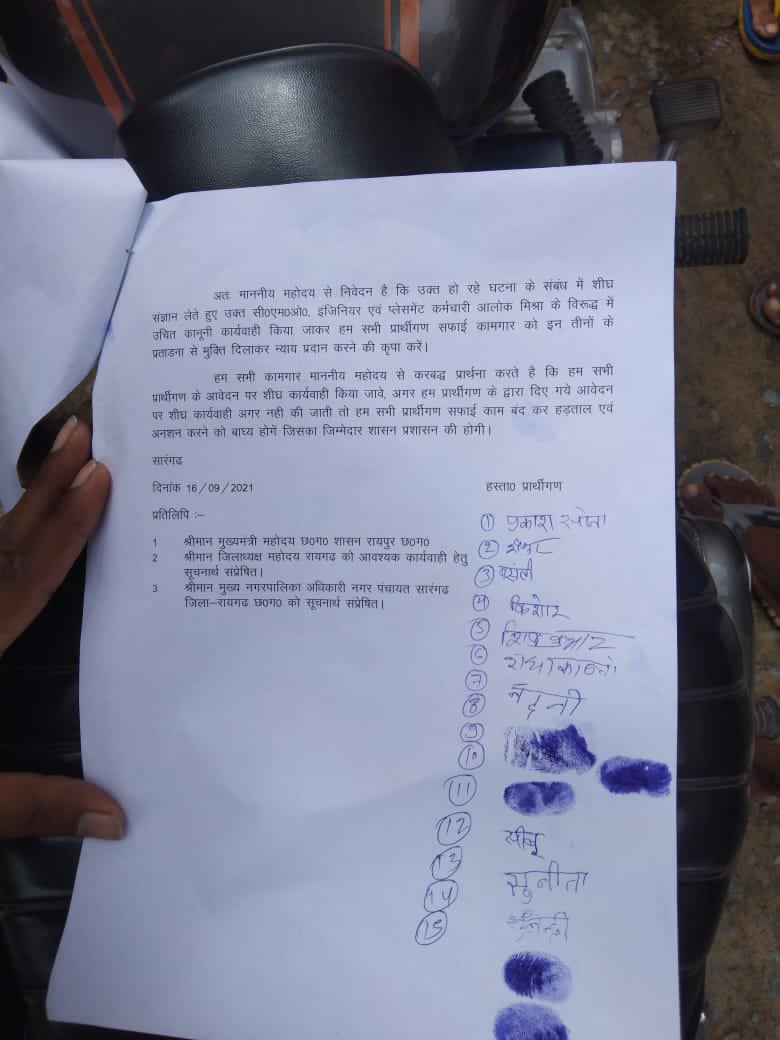 अतः माननीय महोदय से निवेदन है कि उक्त हो रहे घटना के संबंध में शीघ्र
संज्ञान लेते हुए उक्त सी0एम0ओ0, इंजिनियर एवं प्लेसमेंट कर्मचारी आलोक मिश्रा के विरूद्ध में
उचित कानूनी कार्यवाही किया जाकर हम सभी प्रार्थीगण सफाई कामगार को इन तीनों के
प्रताडना से मुक्ति दिलाकर न्याय प्रदान करने की कृपा करें।
हम सभी कामगार माननीय महोदय से करबद्ध प्रार्थना करते है कि हम सभी
प्रार्थीगण के आवेदन पर शीघ्र कार्यवाही किया जावे, अगर हम प्रार्थीगण के द्वारा दिए गये आवेदन
पर शीघ्र कार्यवाही अगर नही की जाती तो हम सभी प्रार्थीगण सफाई काम बंद कर हड़ताल एवं
अनशन करने को बाध्य होगें जिसका जिम्मेदार शासन प्रशासन की होगी।
सारंगढ
दिनांक 16/09/2021
हस्ता0 प्रार्थीगण
प्रतिलिपि :–
1 श्रीमान मुख्यमत्री महोदय छ0ग0 शासन रायपुर छ0ग0
2 श्रीमान जिलाध्यक्ष महोदय रायगढ को आवश्यक कार्यवाही हेतु
सूचनार्थ संप्रेषित।
3 श्रीमान मुख्य नगरपालिका अधिकारी नगर पंचायत सारंगढ
जिला–रायगढ छ0ग0 को सूचनार्थ संप्रेषित।
1 प्रकाश सोना
2
3
4 किशोर
5
6
7
8 नंदनी
9
10
11
12
13
14 सुनीता
15